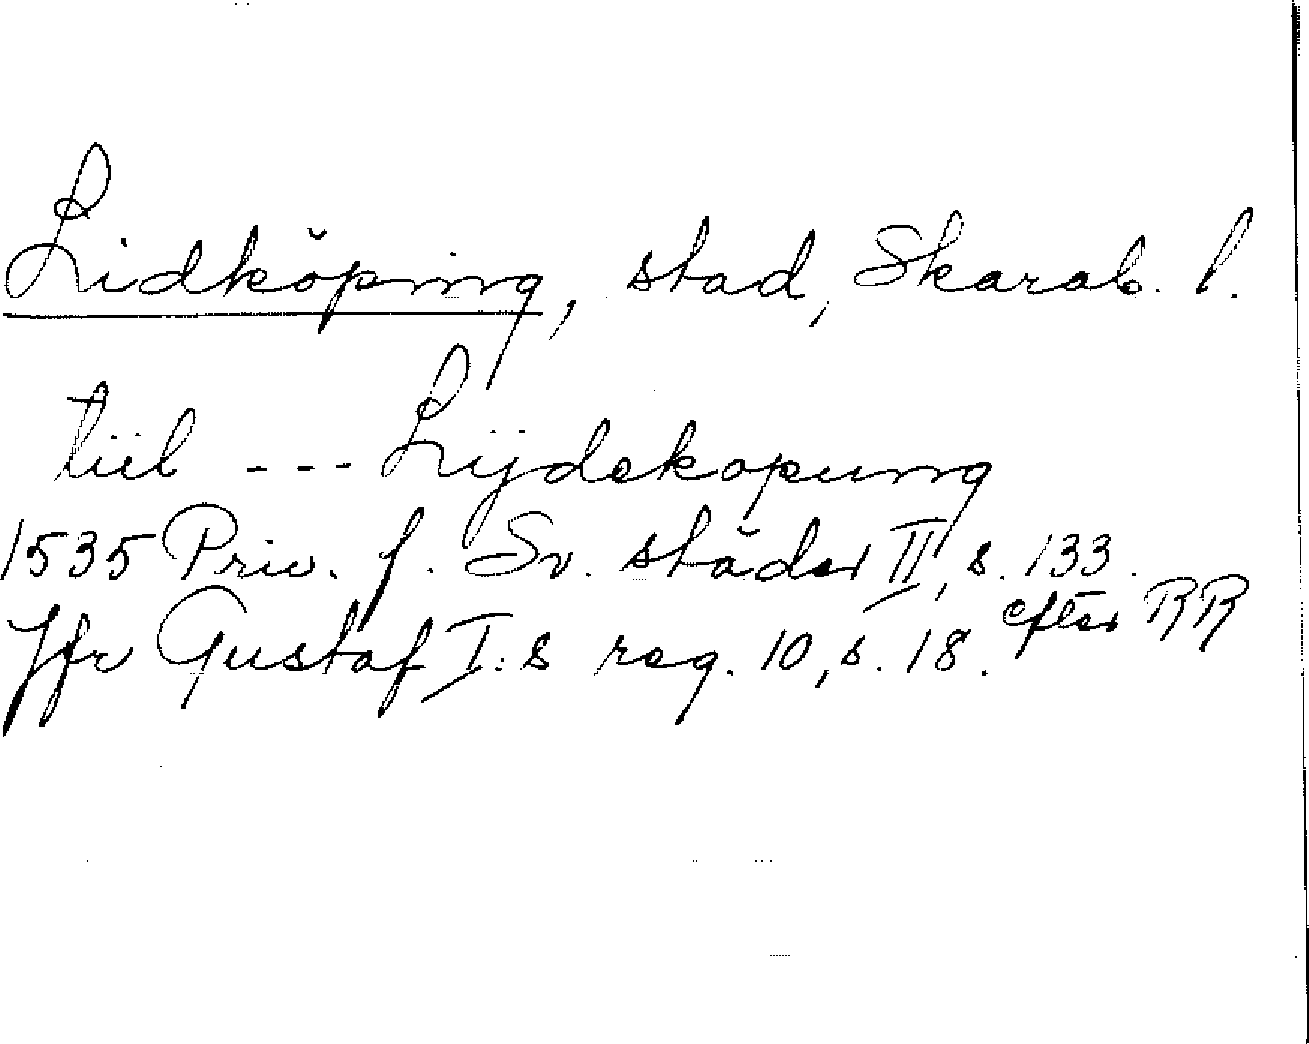 Lidköping, stad, Skarab. l.
tiil --- Lijdekopung
1535 Priv. f. Sv. städer II, s. 133.
efter RR
Jfr Gustaf I:s reg. 10, s. 18.